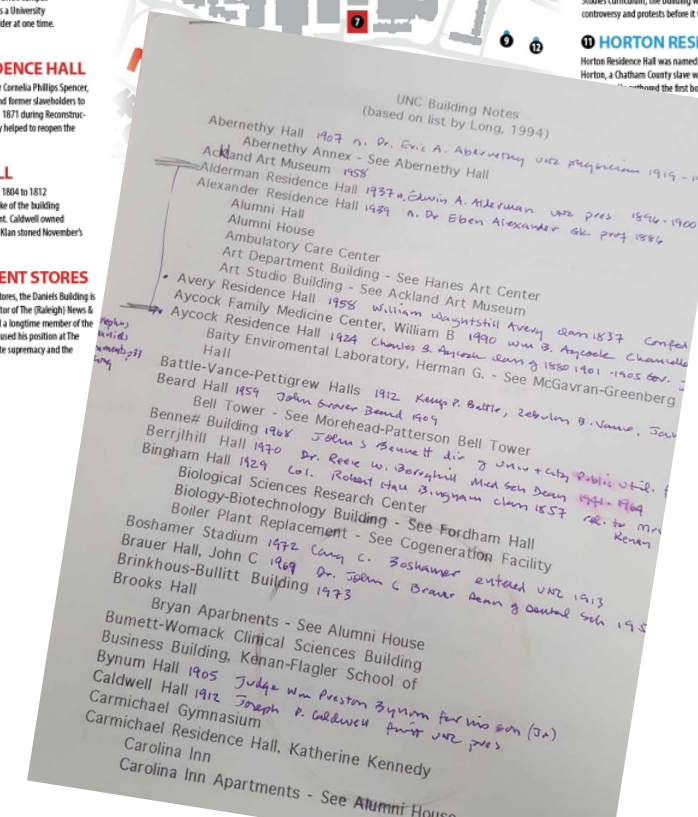 s a University
der at one time.
7
9
12
controversy and protests before it
11 HORTON RESI
Horton Residence Hall was named
Horton, a Chatham County slave w
authored the first bo
DENCE HALL
Cornelia Phillips Spencer,
nd former slaveholders to
1871 during Reconstruc-
y helped to reopen the
LL
1804 to 1812
ke of the building
nt. Caldwell owned
Klan stoned November's
ENT STORES
tores, the Daniels Building is
tor of The (Raleigh) News &
d a longtime member of the
used his position at The
te supremacy and the
UNC Building Notes
(based on list by Long, 1994)
Abernethy Hall 1907 n. Dr. Eric A. Abernethy UNC physician 1919-
Abernethy Annex - See Abernethy Hall
Ackland Art Museum 1958
Alderman Residence Hall 1937 n. Edwin A. Alderman UNC pres 1896-1900
Alexander Residence Hall 1939 n. Dr Eben Alexander Gk prof 1886
Alumni Hall
Alumni House
Ambulatory Care Center
Art Department Building - See Hanes Art Center
Art Studio Building - See Ackland Art Museum
Avery Residence Hall 1958 William Waightstill Avery class 1837 Confed
Aycock Family Medicine Center, William B 1990 Wm B. Aycock Chancello
Aycock Residence Hall 1924 Charles B. Aycock class of 1880 1901-1905 Gov.
Baity Enviromental Laboratory, Herman G. - See McGavran-Greenberg
Hall
Battle-Vance-Pettigrew Halls 1912 Kemp P. Battle, Zebulon B. Vance,
Beard Hall 1959 John Grover Beard 1909
Bell Tower - See Morehead-Patterson Bell Tower
Benne# Building 1968 John S Bennett dir of Univ + City Public Util.
Berrjlhill Hall 1970 Dr. Reece W. Berryhill Med Sch Dean 1941-1964
Bingham Hall 1929 Col. Robert Hall Bingham class 1857 rel. to Mrs
Kenan
Biological Sciences Research Center
Biology-Biotechnology Building - See Fordham Hall
Boiler Plant Replacement - See Cogeneration Facility
Boshamer Stadium 1972 Cary C. Boshamer entered UNC 1913
Brauer Hall, John C 1969 Dr. John C Brauer Dean of Dental Sch 195
Brinkhous-Bullitt Building 1973
Brooks Hall
Bryan Aparbnents - See Alumni House
Bumett-Womack Clinical Sciences Building
Business Building, Kenan-Flagler School of
Bynum Hall 1905 Judge Wm Preston Bynum for his son (Jr)
Caldwell Hall 1912 Joseph P. Caldwell first UNC pres
Carmichael Gymnasium
Carmichael Residence Hall, Katherine Kennedy
Carolina Inn
Carolina Inn Apartments - See Alumni House